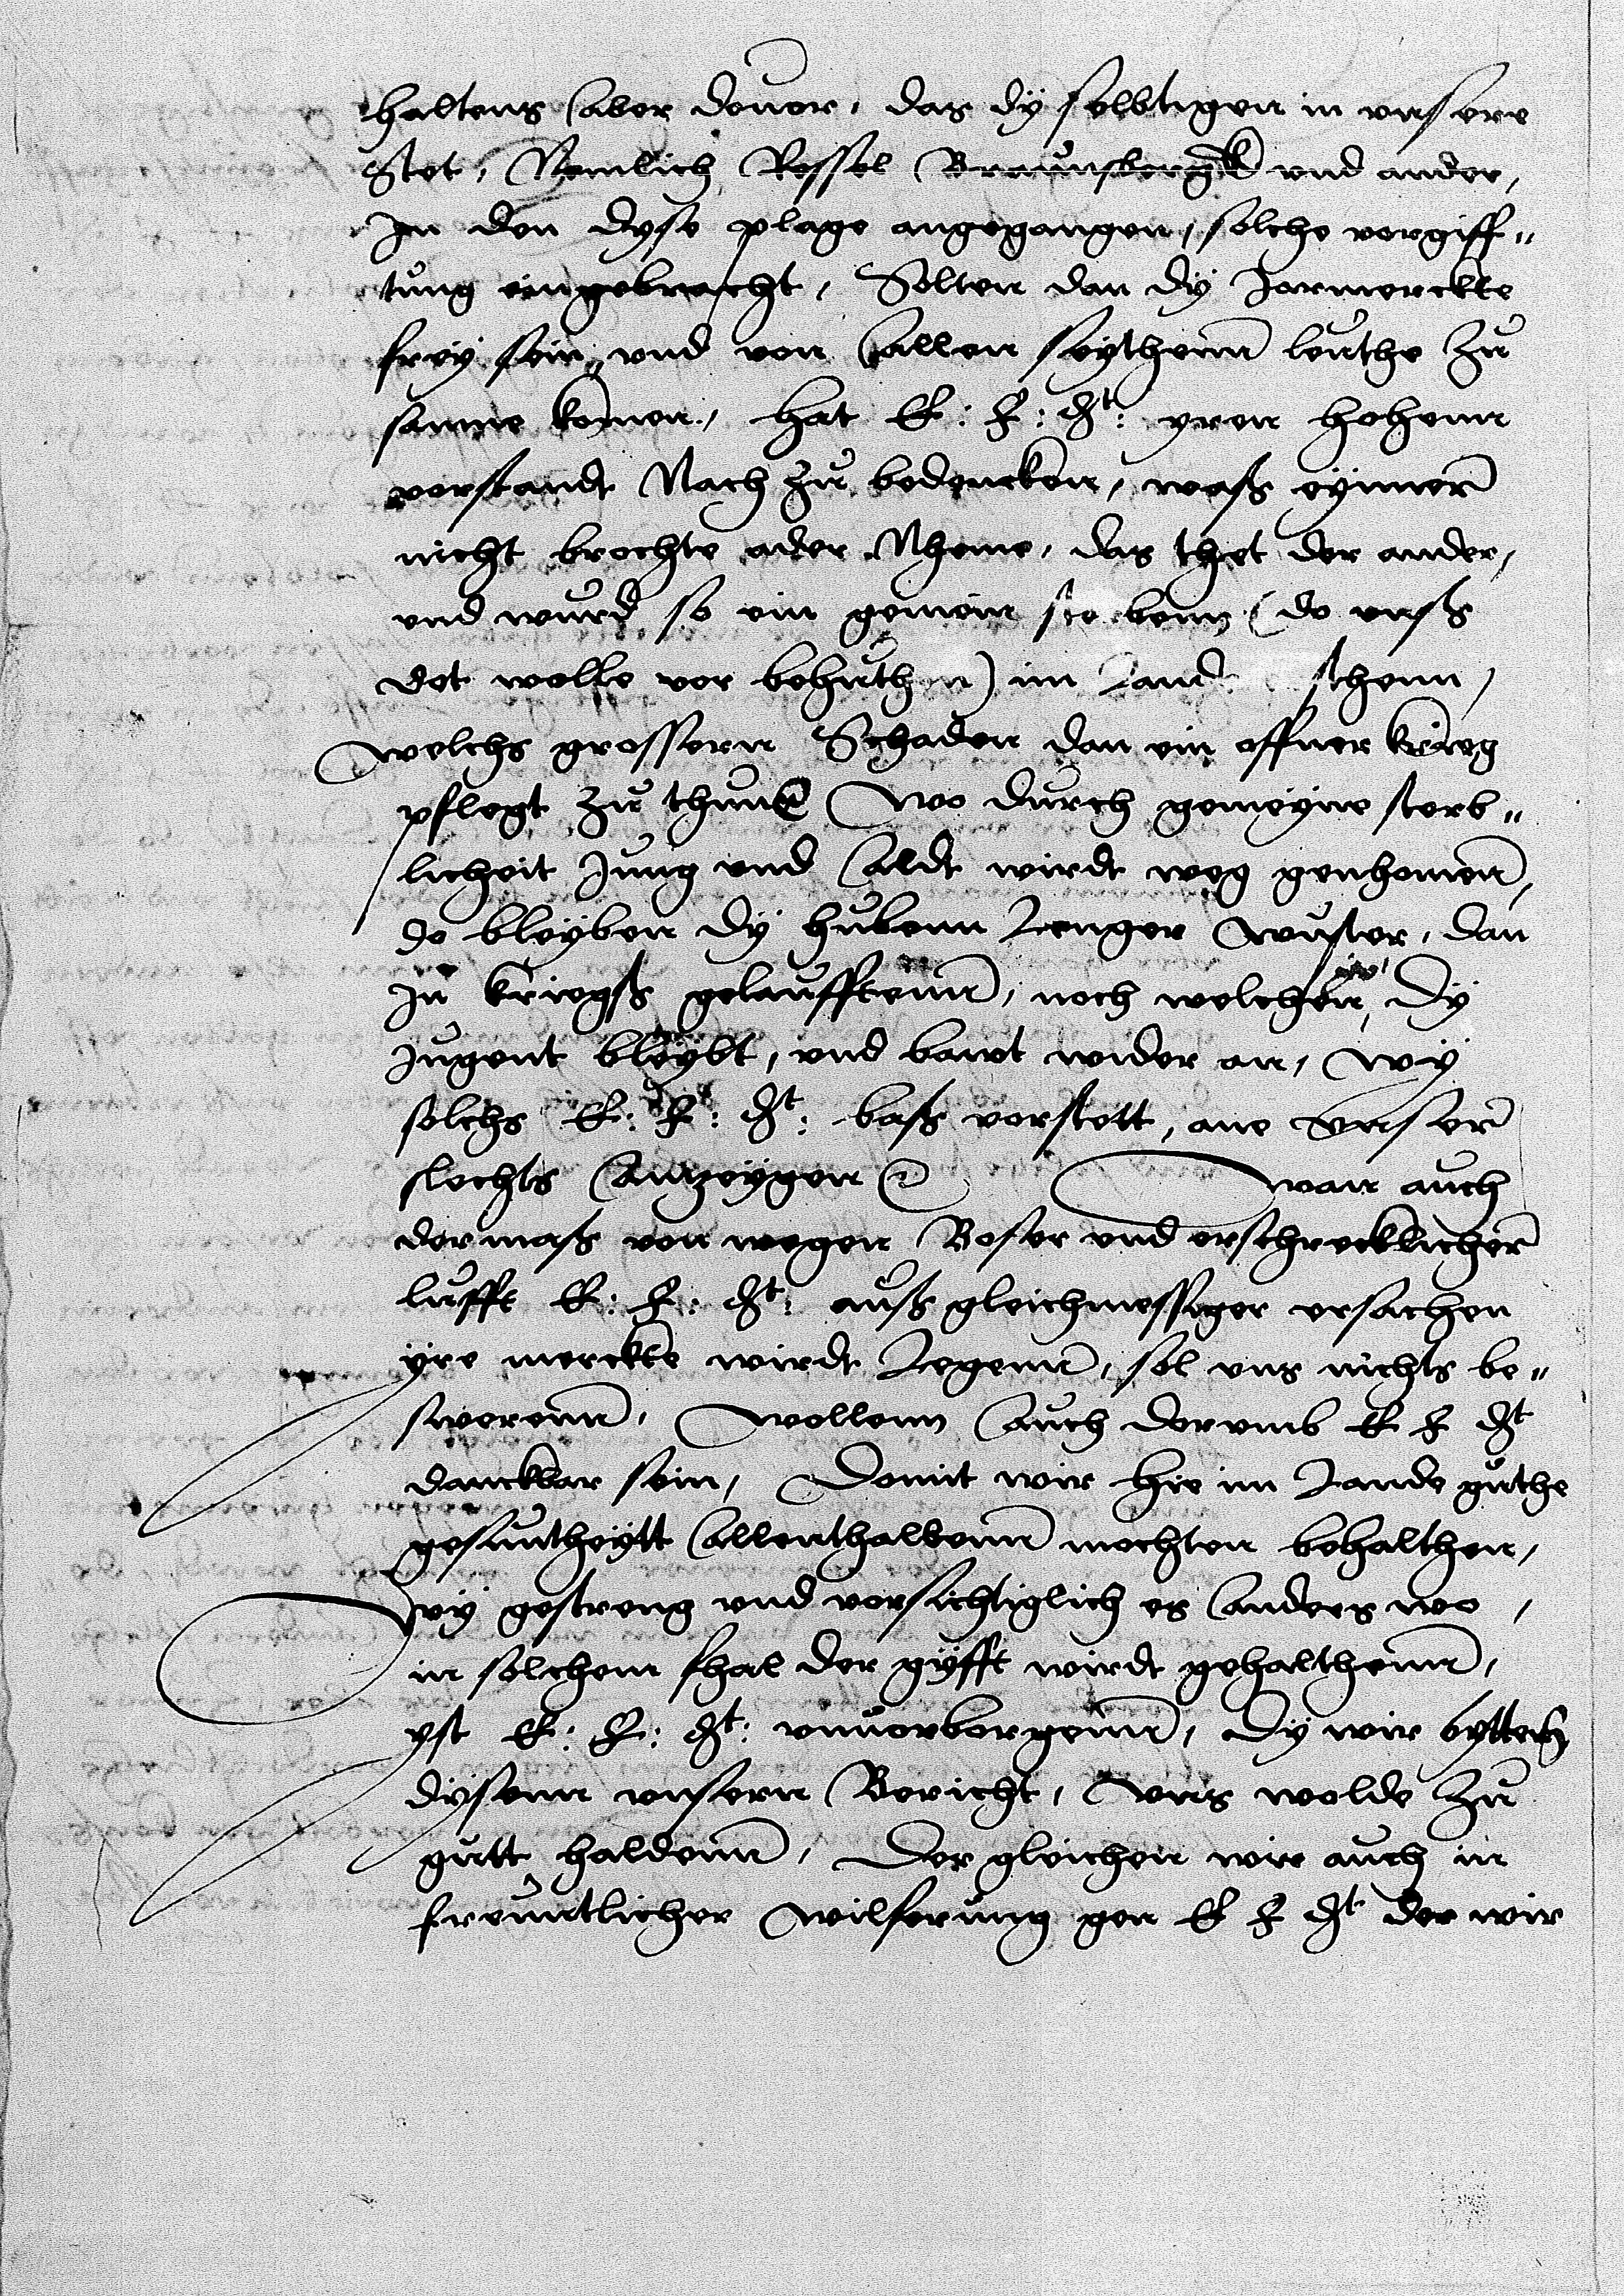 haltens aber douor, das dÿ selbtigen in vnsere
Stet, Nemlich Ressel Braunsbergk vnd ander,
In den dyse plage angegangen, solche vorgiff„
tung eingebracht, Solten dan dÿ Jarmerckte
freÿ sein, vnd von allen seythenn leuthe zu
samne komen, hat E: F: Dt: yren hohenn
vorstandt Nach zu bedencken, waß eÿnner
nicht brochte ader Nheme, das thet der ander,
vnd wurd so ein gemein sterbenn (do vnß
Got wolle vor behuthen) im Land sthenn,
welchs grossern Schaden dan ein offner krieg
pflegt zu thun Wo durch gemeÿne sterb„
licheit Jung vnd aldt wirdt weg genhomen,
do bleÿben dÿ hubenn Lenger wuster, dan
In kriegß gelaufftenn, noch welchen, dÿ
Jugent bleÿbt, vnd bawt wider an, wÿ
solchs E: F: Dt: baß vorstett, ane vnser
slechts antzeÿgen wan auch
dermaß von wegen Boser vnd erschrecklicher
lufft E: F: Dt: auß gleichmessiger vrsachen
ÿre merckte wirdt Legenn, sol vns nichts be„
swerenn, wollenn auch dorumb E F Dt
danckbar sein, Domit wir hie im Lande guthe
gesuntheÿtt allenthalbenn mochten behalthen,
wÿ gestreng vnd vorsichtiglich es anders wo,
in solchem fhal der gÿfft wirdt gehalthenn,
yst E: F: Dt: vnuorborgenn, dÿ wir bytten,
dÿsenn vnsern Bericht, vns wolde zu
gutt haldenn, Der gleichen wir auch in
freuntlicher wilferung gen E F Dt der wir